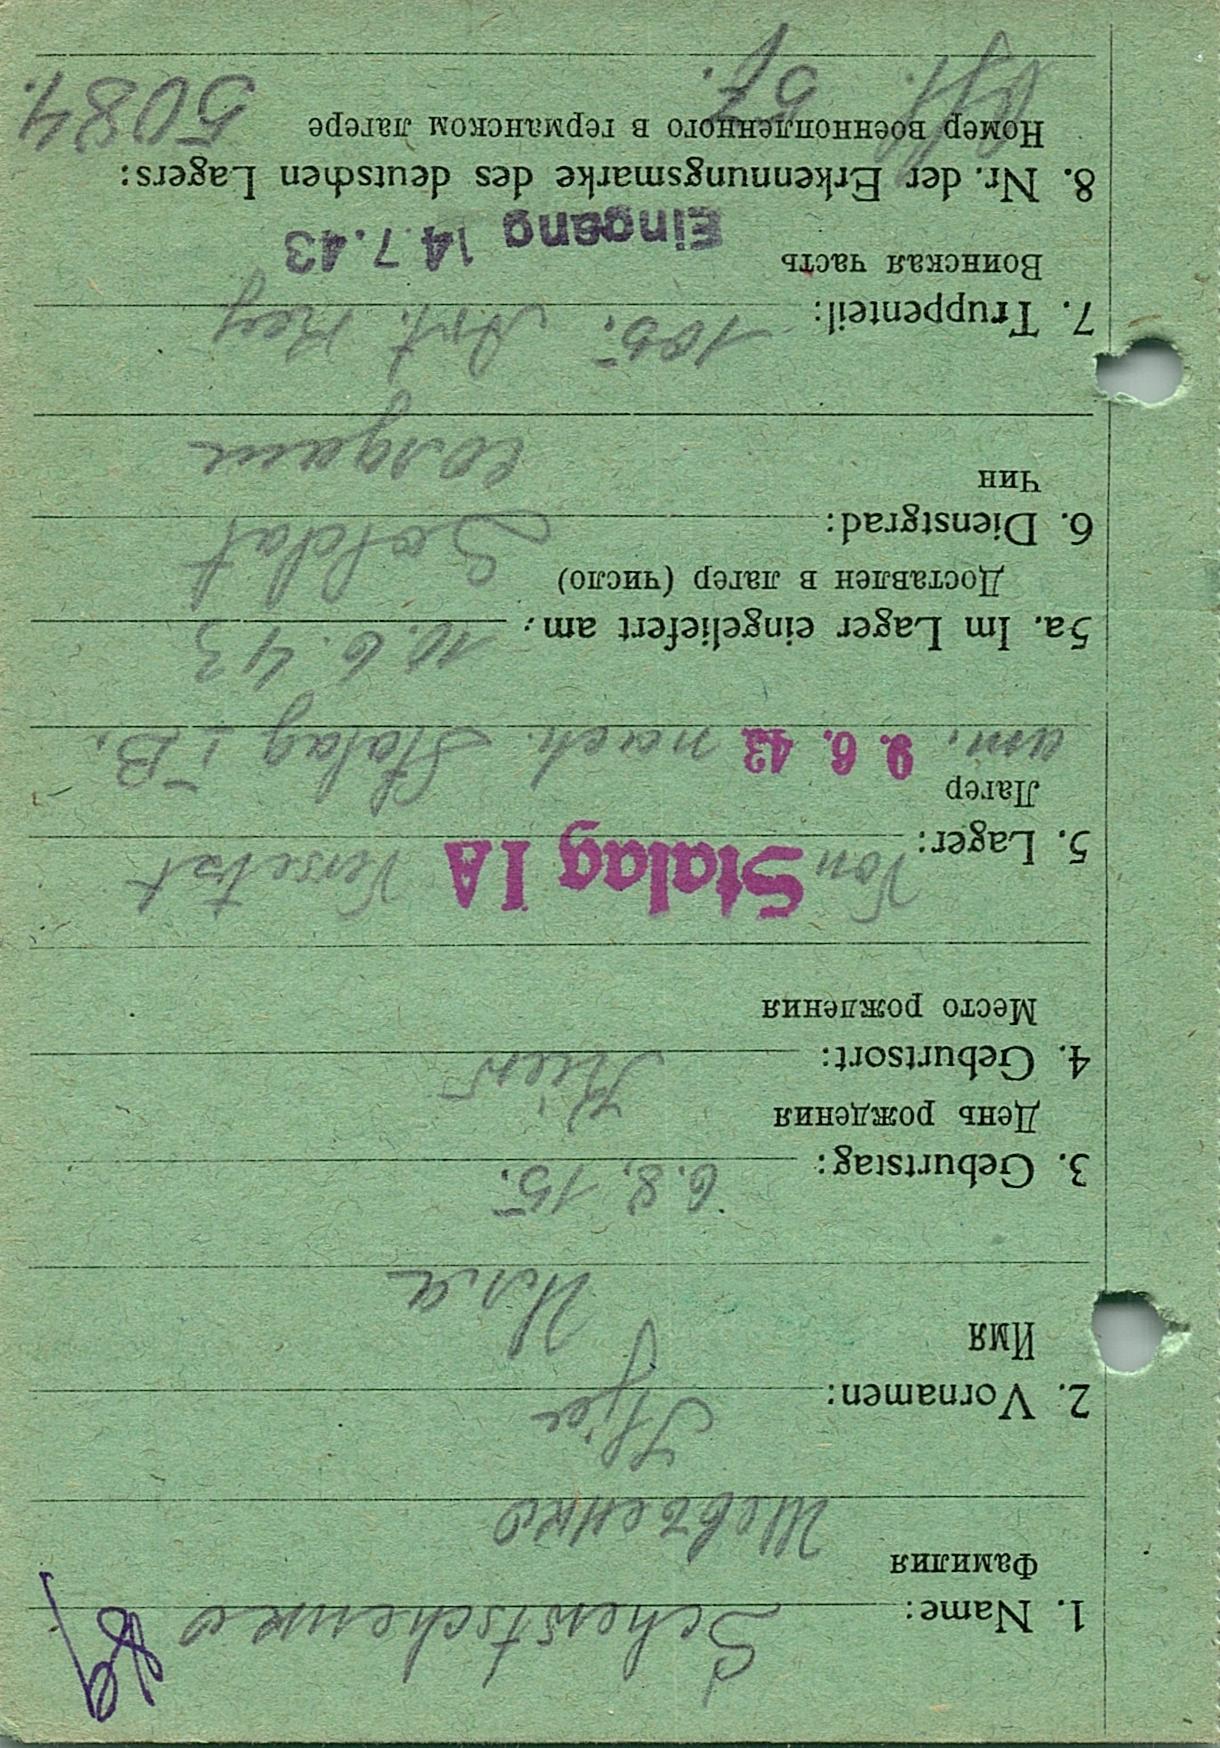 1. Name: Schewtschenko
Фамилия Шевченко
2. Vornamen: Ilja
Имя Илa
3. Geburtstag: 6.8.15.
День рождения
4. Geburtsort: Kiew
Место рождения
5. Lager: Von Stalag IA Versetzt
Лагер
am. 9. 6. 43 nach. Stalag I B.
5a. Im Lager eingeliefert am: 10.6.43
Доставлен в лагер (число)
6. Dienstgrad: Soldat
Чин солдат
7. Truppenteil: 105. Art. Reg
Воинская часть
Eingang 14.7.43
8. Nr. der Erkennungsmarke des deutschen Lagers:
Номер военнопленного в германском лагере
5084.